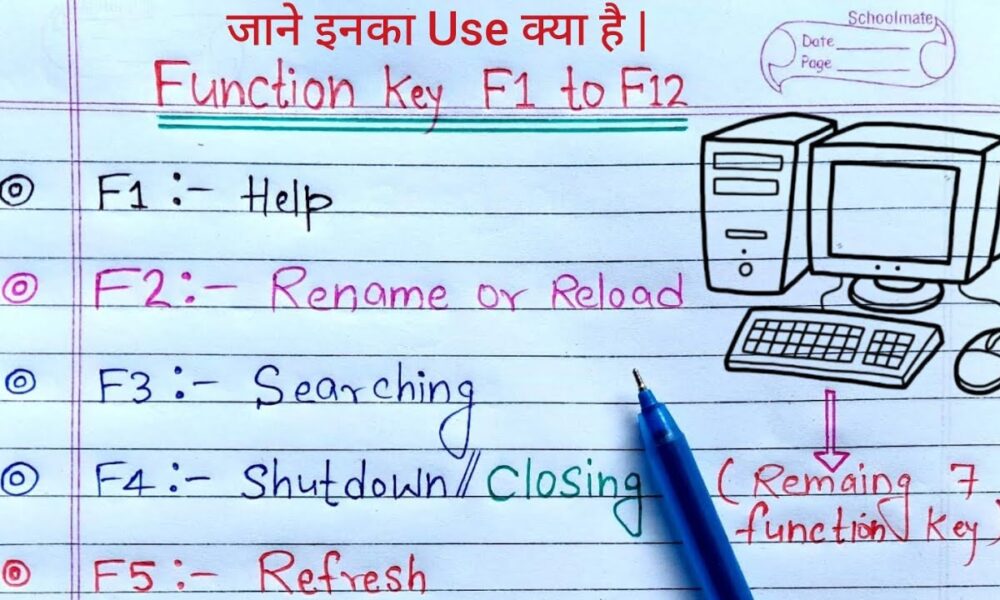 जाने इनका Use क्या है |
Schoolmate
Date
Page
Function Key F1 to F12
F1 :- Help
F2 :- Rename or Reload
F3 :- Searching
F4 :- Shutdown // Closing
(Remaing 7
function Key)
F5 :- Refresh